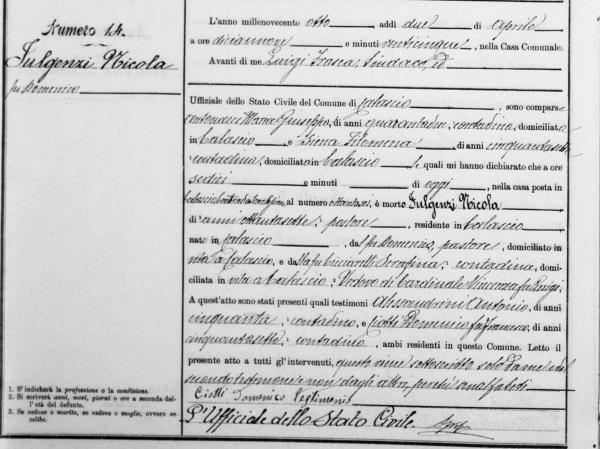 Numero 14.
Fulgenzi Nicola
fu Domenico
1. S'indicherà la professione o la condizione.
2. Si scriverà anni, mesi, giorni o ore a seconda dell'età del defunto.
3. Se vedovo o marito, se vedova o moglie, ovvero se celibe.
L'anno millenovecento otto, addì due di aprile
a ore diciannove e minuti venticinque, nella Casa Comunale.
Avanti di me Luigi Frasca, Sindaco, ed
Uffiziale dello Stato Civile del Comune di Calascio, sono comparsi
Maria Giuseppe, di anni quarantadue, contadina, domiciliata
in Calascio, e Filomena di anni cinquantasette
contadina, domiciliata in Calascio, le quali mi hanno dichiarato che a ore
sedici e minuti di oggi, nella casa posta in
al numero ottantasei, è morto Fulgenzi Nicola
di anni ottantasette, pastore, residente in Calascio,
nato in Calascio, da fu Domenico, pastore, domiciliato in
vita a Calascio, e da fu Serafina, contadina, domiciliata
in vita a Calascio, Vedovo di Cardinale Vincenza fu Luigi.
A quest'atto sono stati presenti quali testimoni Alessandrini Antonio, di anni
cinquanta, contadino, e Ciotti Domenico fu Francesco, di anni
cinquantasette, contadino, ambi residenti in questo Comune. Letto il
presente atto a tutti gl'intervenuti, questo viene sottoscritto solo da me e dal
secondo testimone e non dagli altri, perché analfabeti.
Ciotti Domenico Testimonio
L'Uffiziale dello Stato Civile